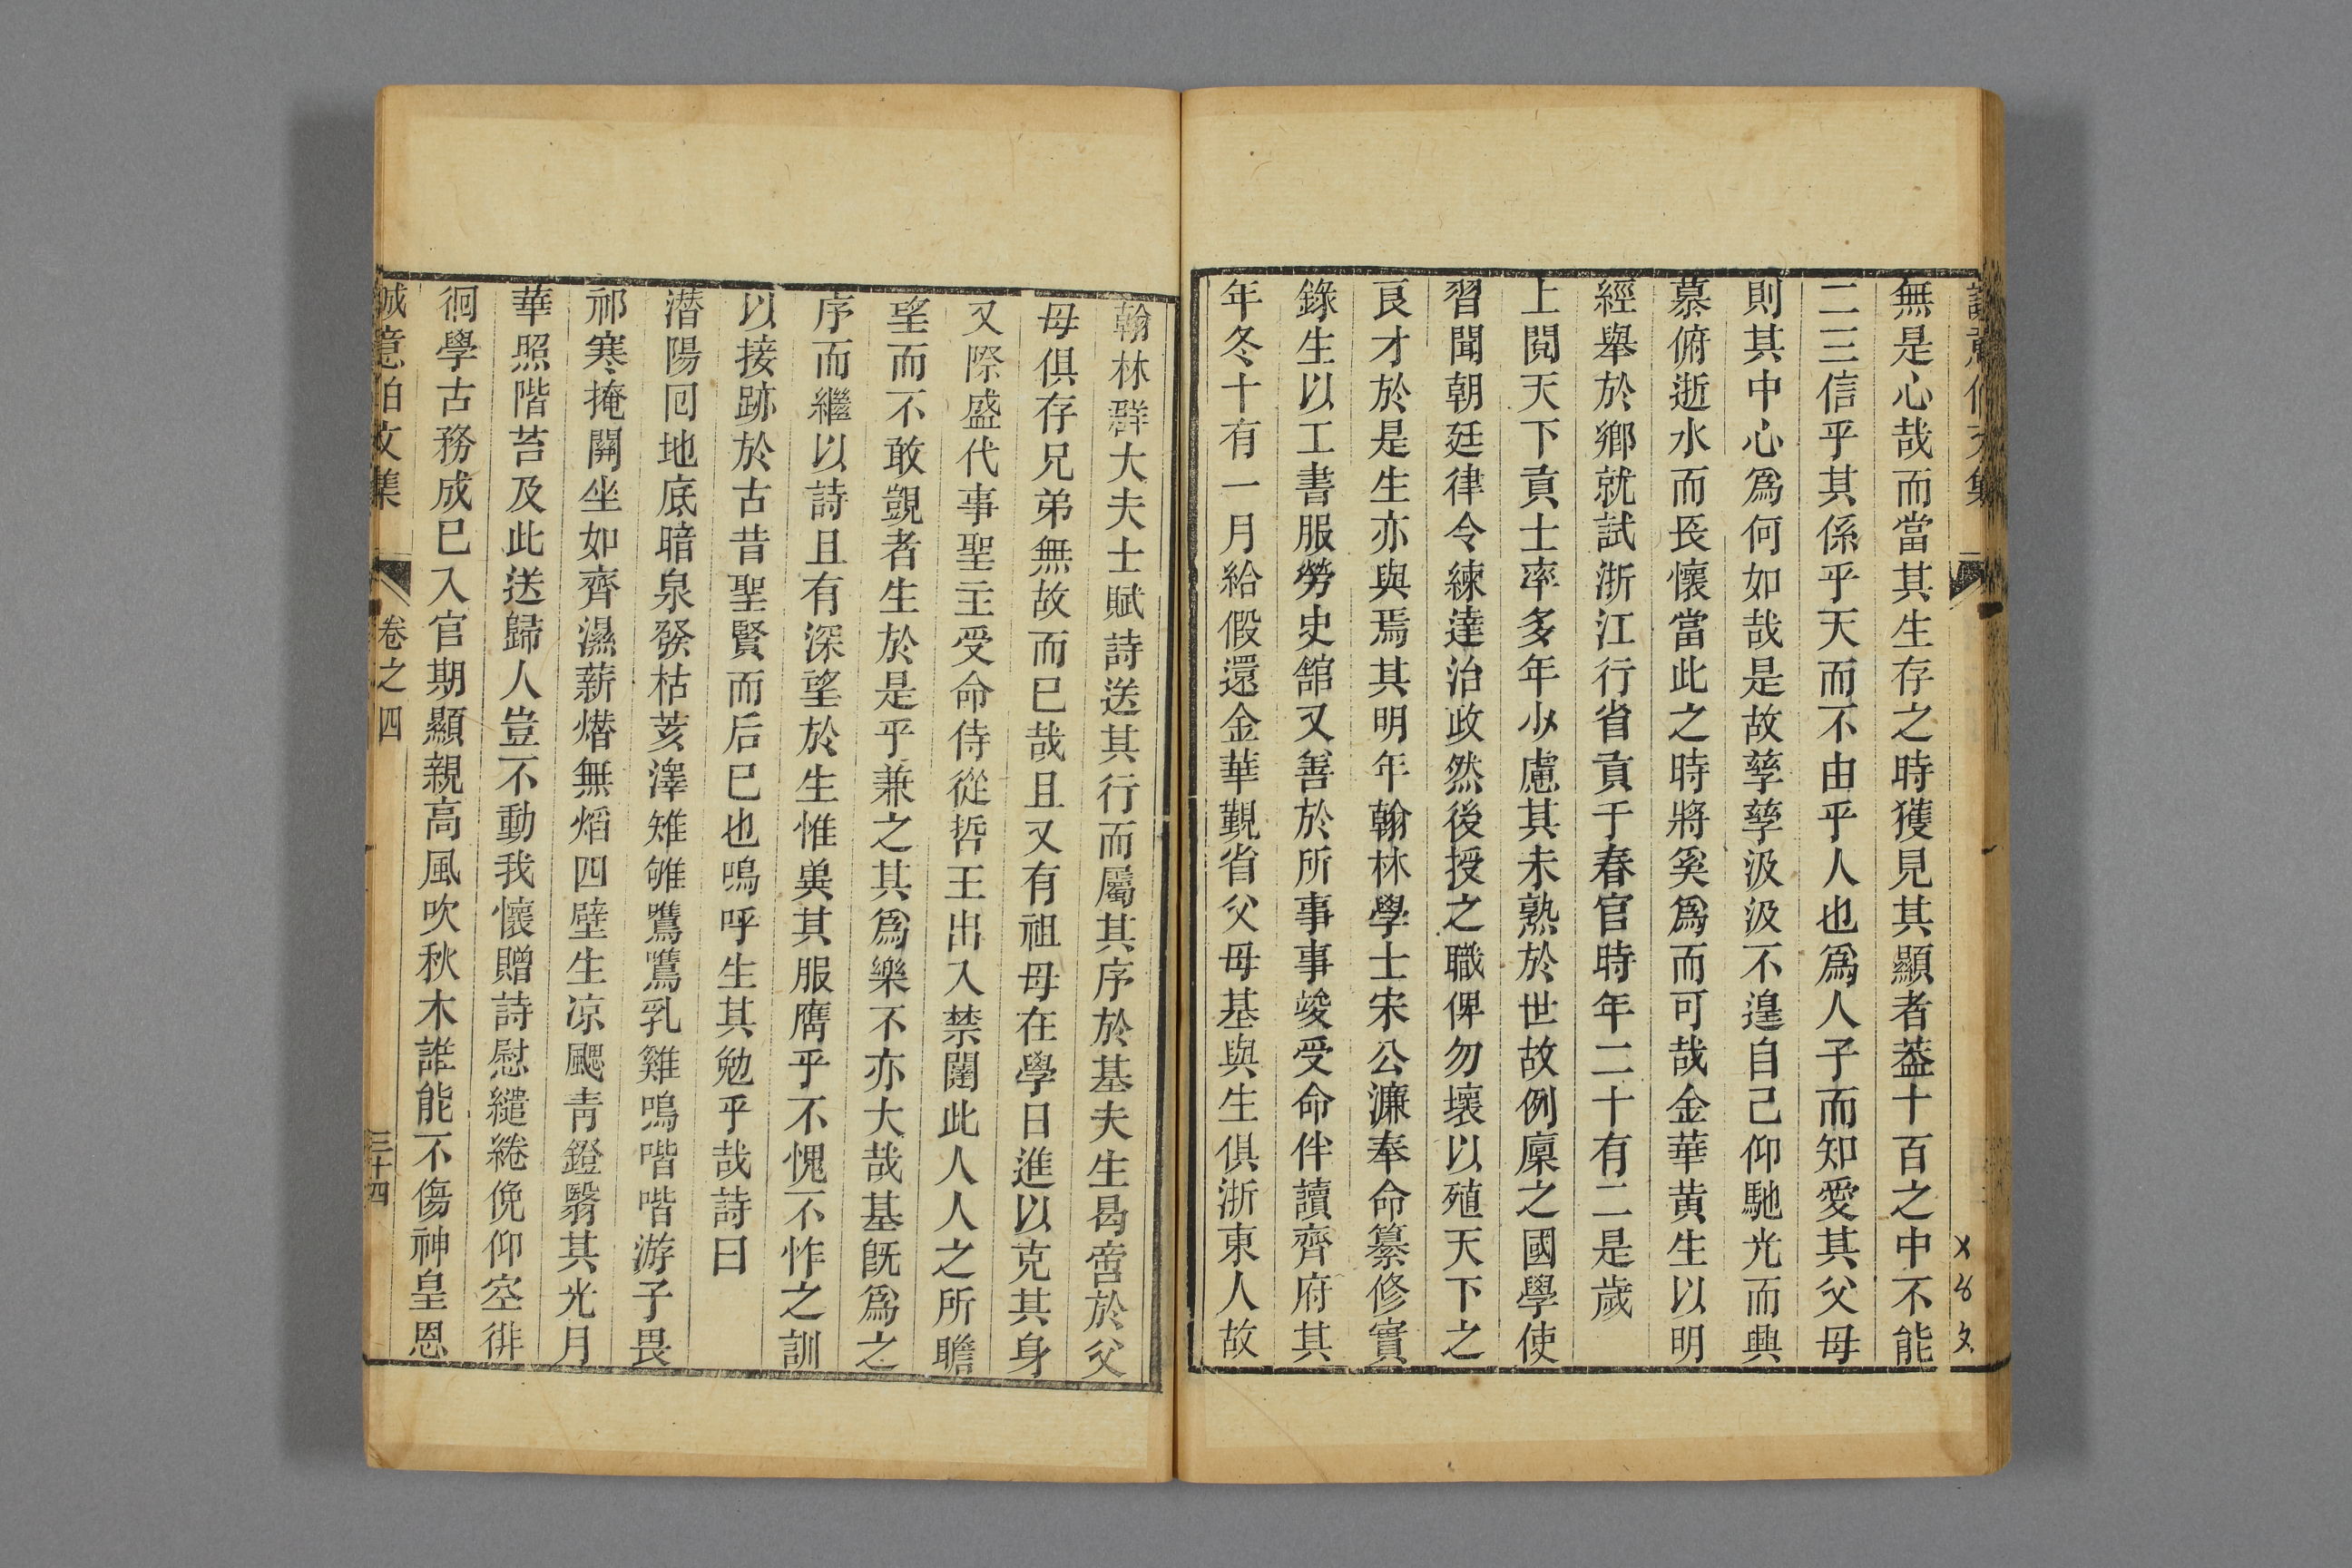 無是心哉而當其生存之時獲見其顯者葢十百之中不能
二三信乎其係乎天而不由乎人也爲人子而知愛其父母
則其中心爲何如哉是故孳孳汲汲不遑自己仰馳光而興
慕俯逝水而長懷當此之時將奚爲而可哉金華黄生以明
經舉於鄉就試浙江行省貢于春官時年二十有二是歲
上閱天下貢士率多年少慮其未熟於世故例廩之國學使
習聞朝廷律令練達治政然後授之職俾勿壞以殖天下之
良才於是生亦與焉其明年翰林學士宋公濂奉命纂修實
錄生以工書服勞史舘又善於所事事竣受命伴讀齊府其
年冬十有一月給假還金華覲省父母基與生俱浙東人故
翰林群大夫士賦詩送其行而屬其序於基夫生曷嘗於父
母俱存兄弟無故而已哉且又有祖母在學日進以克其身
又際盛代事聖主受命侍從哲王出入禁闥此人人之所瞻
望而不敢覬者生於是乎兼之其爲樂不亦大哉基旣爲之
序而繼以詩且有深望於生惟兾其服膺乎不愧不怍之訓
以接跡於古昔聖賢而后已也嗚呼生其勉乎哉詩曰
潜陽囘地底暗泉發枯荄澤雉雊鷕鷕乳雞鳴喈喈游子畏
祁寒掩關坐如齊濕薪熸無熖四壁生凉颸青鐙翳其光月
華照階苔及此送歸人豈不動我懷贈詩慰繾綣俛仰空徘
徊學古務成已入官期顯親高風吹秋木誰能不傷神皇恩
誠意伯文集 卷之四 三十四